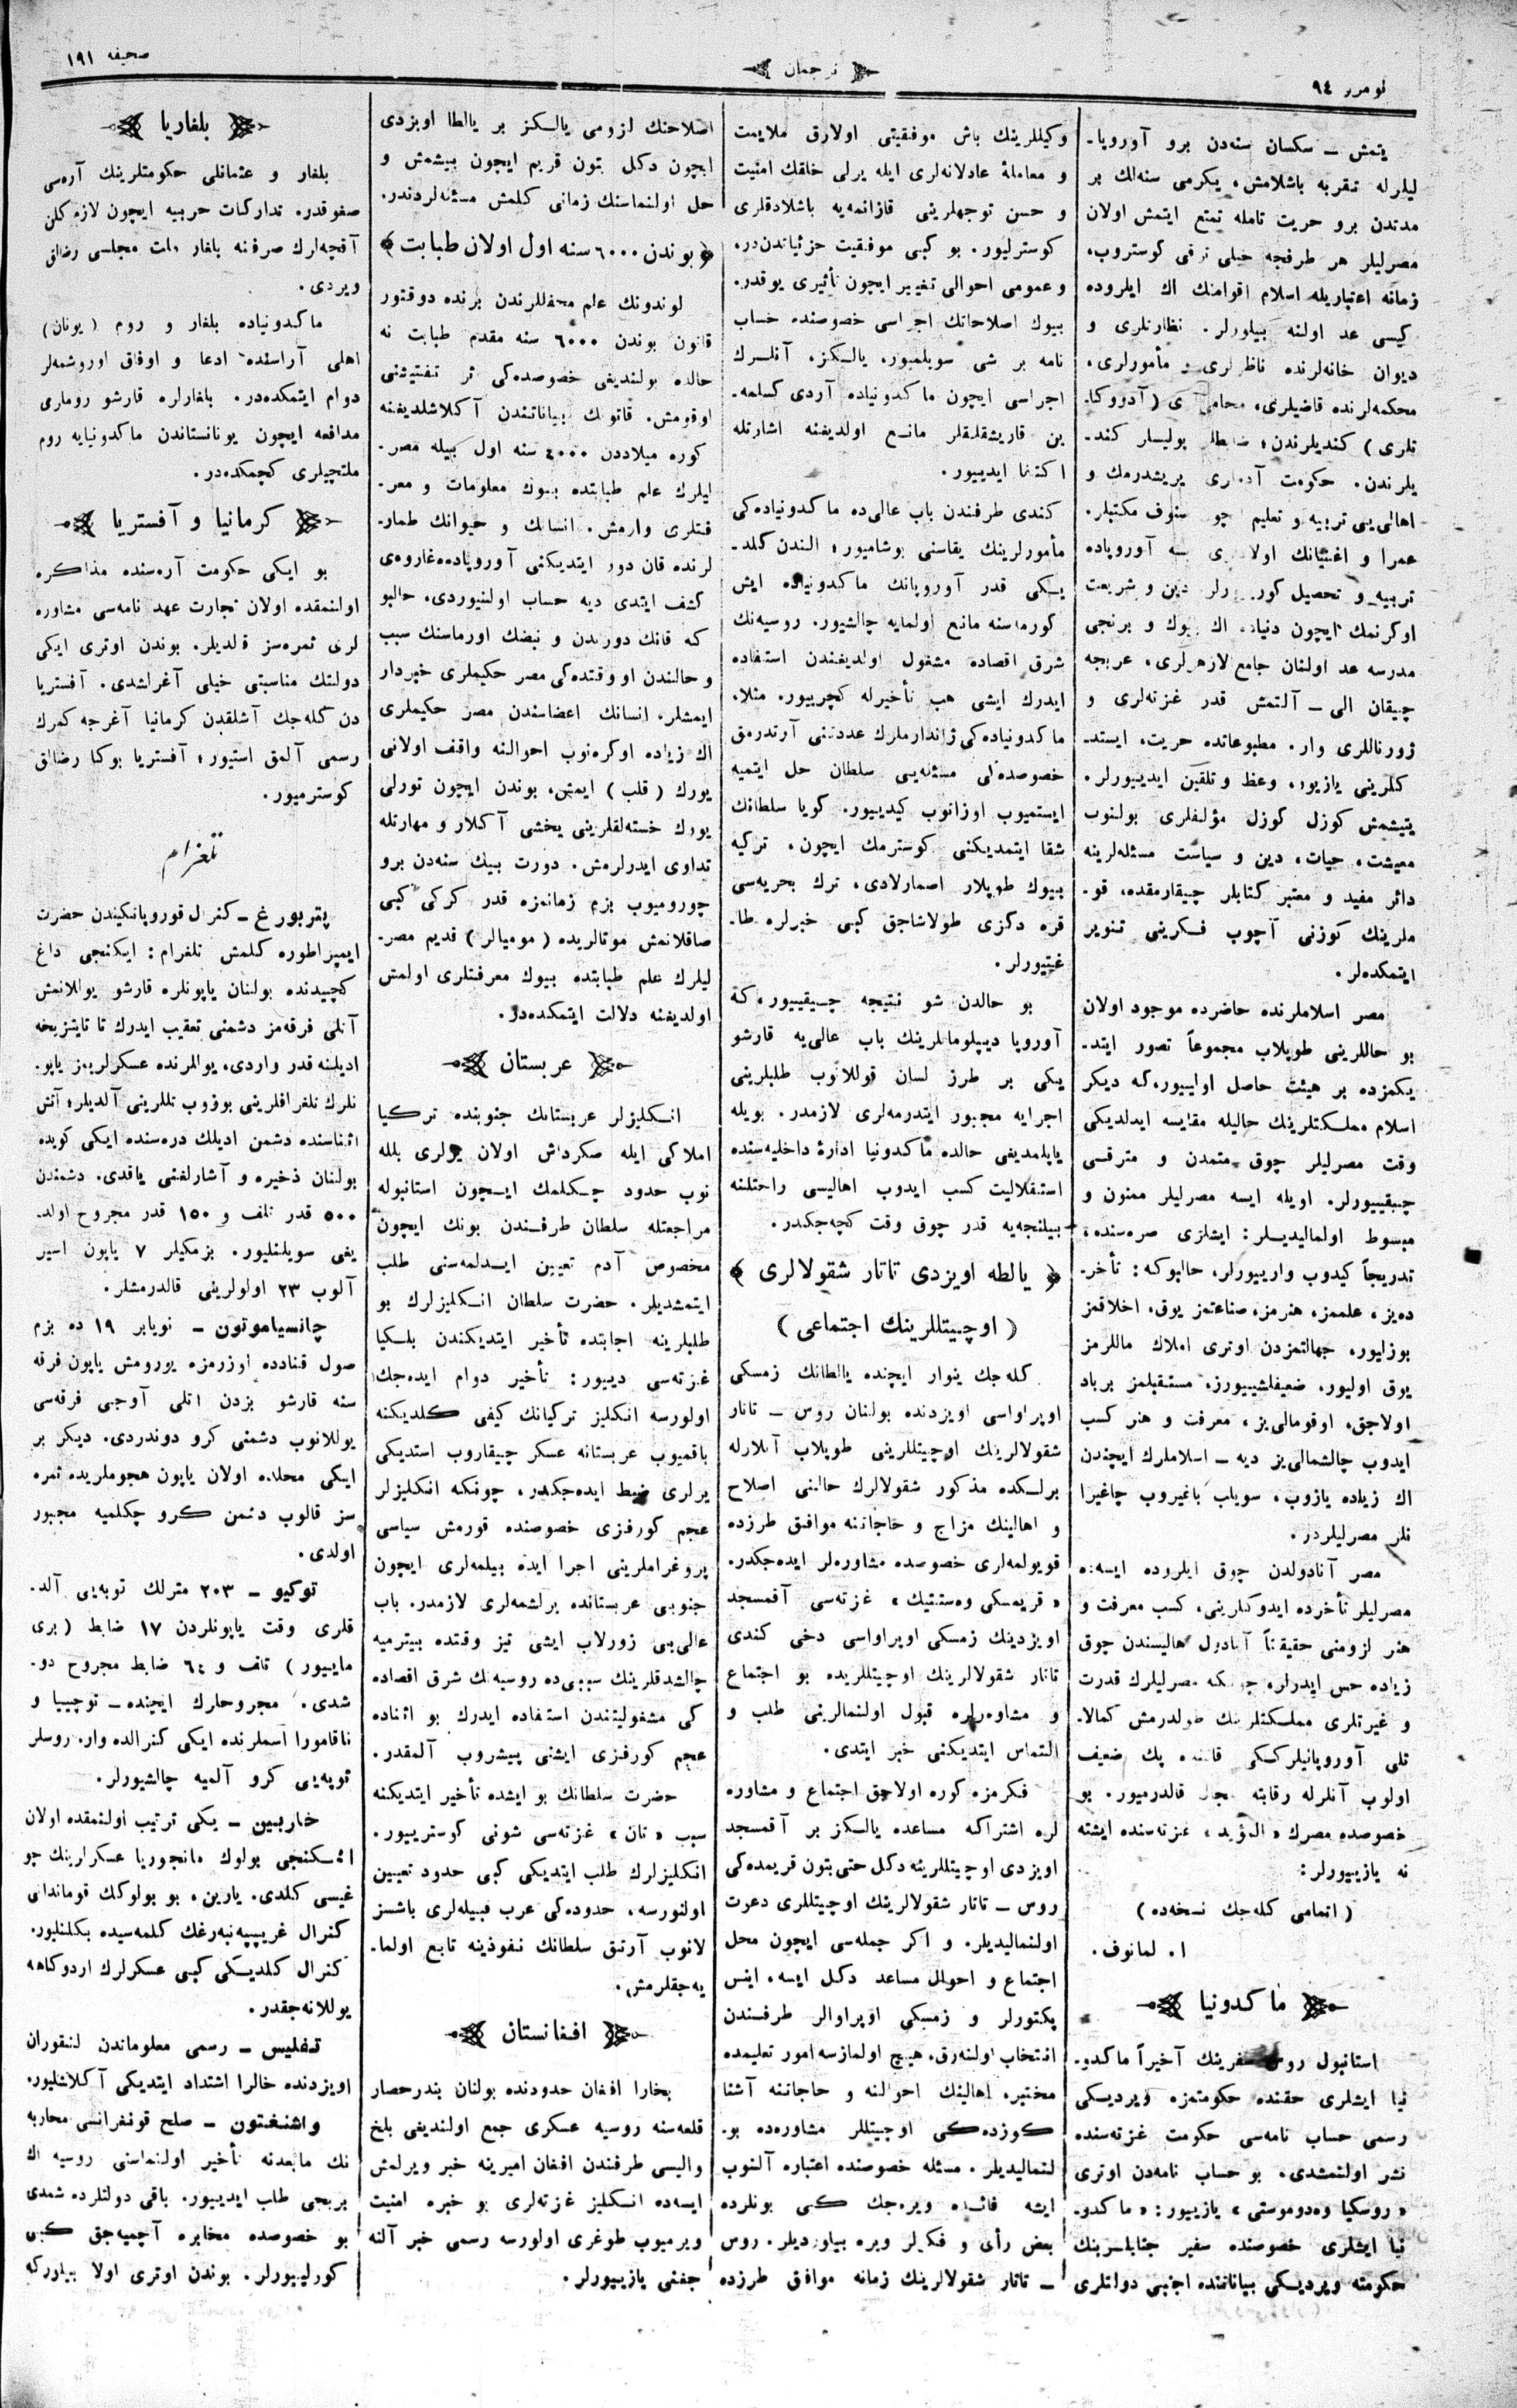 نومرو ٩٤
ترجمان
صحيفه ١٩١
يتمش ــ سكسان سنه‌دن برو آوروپا۔
ليلرله تقربه باشلامش، يكرمى سنه‌لك بر
مدتدن برو حريت تامله تمتع ايتمش اولان
مصرليلر هر طرفجه خيلى ترقى كوستروب،
زمانه اعتباريله اسلام اقوامنك اك ايلروده
كيسى عد اولنه بيلورلر. نظارتلرى و
ديوان خانه‌لرنده ناظرلرى و مأمورلرى،
محكمه‌لرنده قاضيلرى، محاميلرى (آدووكا۔
تلرى) كنديلرندن؛ ضابطلر پوليسلر كند۔
يلرندن. حكومت آدملرى يريشدرمك و
اهالى‌يى تربيه و تعليم صنوف مكتبلر.
عمرا و اغنيانك اولادلرى آوروپاده
تربيه و تحصيل دين و شريعت
اوكرنمك ايچون دنيانك اك بيوك و برنجى
مدرسه عد اولنان جامع لازهرلرى، عربجه
چيقان اللى ــ آلتمش قدر غزته‌لرى و
ژورناللرى وار. مطبوعاتده حريت، ايستد۔
كلرينى يازيور، وعظ و تلقين ايديييورلر.
يتيشمش كوزل كوزل مؤلفلرى بولنوب
معيشت، حيات، دين و سياست مسئله‌لرينه
دائر مفيد و معتبر كتابلر چيقارمقده، قو۔
ملرينك كوزنى آچوب فكرينى تنوير
ايتمكده‌لر.
مصر اسلاملرنده حاضرده موجود اولان
بو حاللرينى طوپلاب مجموعاً تصور ايتد۔
يكمزده بر هيئت حاصل اوليييور، كه ديكر
اسلام مملكتلرينك حاليله مقايسه ايدلديكى
وقت مصرليلر چوق متمدن و مترقى
چيقييورلر. اويله ايسه مصرليلر ممنون و
مبسوط اولماليديلر: ايشلرى صره‌سنده،
تدريجاً كيدوب وارييورلر، حالبوكه: تأخر۔
ده‌يز، علممز، هنرمز، صناعتمز يوق، اخلاقمز
بوزليور، جهالتمزدن اوترى املاك ماللرمز
يوق اوليور، ضعيفلشييورز، مستقبلمز برباد
اولاجق، اوقومالى‌يز، معرفت و هنر كسب
ايدوب چالشمالى‌يز ديه ــ اسلاملرك ايچندن
اك زياده يازوب، سويلب باغيروب چاغيرا
نلر مصرليلردر.
مصر آنادولدن چوق ايلروده ايسه‌ده
مصرليلر تأخرده ايدوكلرينى، كسب معرفت و
هنر لزومنى حقيقتاً آنادول اهاليسندن چوق
زياده حس ايدرلر، چونكه مصرليلرك قدرت
و غيرتلرى مملكتلرينك طولدرمش كمالا۔
تلى آوروپاليلركى قاتنده پك ضعيف
اولوب آنلرله رقابته مجال قالدرميور. بو
خصوصده مصرك «المؤيد» غزته‌سنده ايشته
نه يازييورلر:
(اتمامى كله‌جك نسخه‌ده)
ا. لمانوف.
ماكدونيا
استانبول روس سفرينك آخيراً ماكدو۔
نيا ايشلرى حقنده حكومتمزه ويرديكى
رسمى حساب نامه‌سى حكومت غزته‌سنده
نشر اولنمشدى. بو حساب نامه‌دن اوترى
«روسكيا وه‌دوموستى» يازييور: «ماكدو۔
نيا ايشلرى خصوصنده سفير جنابلرينك
حكومته ويرديكى بياناتنده اجنبى دولتلرى
وكيللرينك باش موفقيتى اولارق ملايمت
و معاملهٔ عادلانه‌لرى ايله يرلى خلقك امنيت
و حسن توجهلرينى قازانمه‌يه باشلادقلرى
كوسترليور. بو كبى موفقيت جزئياتندن‌در،
و عمومى احوالى تغيير ايچون تأثيرى يوقدر.
بيوك اصلاحاتك اجراسى خصوصنده حساب
نامه بر شى سويلميور. يالكز، آنلرك
اجراسى ايچون ماكدونياده آردى كسلمه۔
ين قاريشقلقلر مانع اولديغنه اشارتله
اكتفا ايدييور.
كندى طرفندن باب عالى‌ده ماكدونياده‌كى
مأمورلرينك يقاسنى بوشاميور؛ الندن كلد۔
يكى قدر آوروپانك ماكدونياده ايش
كورمه‌سنه مانع اولمايه چالشيور. روسيه‌نك
شرق اقصاده مشغول اولديغندن استفاده
ايدرك ايشى هب تأخيرله كچرييور. مثلا،
ماكدونياده‌كى ژاندارملرك عددينى آرتدرمق
خصوصده‌كى مسئله‌يى سلطان حل ايتميه
ايستميوب اوزانوب كيدييور. كويا سلطانك
شقا ايتمديكنى كوسترمك ايچون، تركيه
بيوك طوپلار اصمارلادى، ترك بحريه‌سى
قره دكزى طولاشاجق كبى خبرلره طا۔
غيتيورلر.
بو حالدن شو نتيجه چيقييور، كه
آوروپا ديپلوماتلرينك باب عالى‌يه قارشو
يكى بر طرز لسان قوللانوب طلبلرينى
اجرايه مجبور ايتدرمه‌لرى لازمدر. بويله
ياپلمديغى حالده ماكدونيا ادارهٔ داخليه‌سنده
استقلاليت كسب ايدوب اهاليسى راحتلنه
بيلنجه‌يه قدر چوق وقت كچه‌جكدر.
﴿ يالطه اويزدى تاتار شقولالرى ﴾
(اوچيتللرينك اجتماعى)
كله‌جك ينوار ايچنده يالطانك زمسكى
اوپراواسى اويزدنده بولنان روس ــ تاتار
شقولالرينك اوچيتللرينى طوپلاب آنلارله
برلكده مذكور شقولالرك حالنى اصلاح
و اهالينك مزاج و حاجاتنه موافق طرزده
قويولمه‌لرى خصوصده مشاوره‌لر ايده‌جكدر.
«قريمسكى وه‌ستنيك» غزته‌سى آقمسجد
اويزدينك زمسكى اوپراواسى دخى كندى
تاتار شقولالرينك اوچيتللريده بو اجتماع
و مشاوره‌لره قبول اولنمالرينى طلب و
التماس ايتديكنى خبر ايتدى.
فكرمزه كوره اولاجق اجتماع و مشاوره
لره اشتراكه مساعده يالكز بر آقمسجد
اويزدى اوچيتللرينه دكل حتى بتون قريمده‌كى
روس ــ تاتار شقولالرينك اوچيتللرى دعوت
اولنماليديلر. و اكر جمله‌سى ايچون محل
اجتماع و احوال مساعد دكل ايسه، اينس
پكتورلر و زمسكى اوپراوالر طرفندن
انتخاب اولنه‌رق، هيچ اولمازسه امور تعليمده
مختبر، اهالينك احوالنه و حاجاتنه آشنا
كوزده‌كى اوچيتللر مشاوره‌ده بو۔
لنماليديلر. مسئله خصوصنده اعتباره آلنوب
ايشه فائده ويره‌جك كبى بونلرده
بعض رأى و فكرلر ويره بيلورديلر. روس
ــ تاتار شقولالرينك زمانه موافق طرزده
اصلاحنك لزومى يالكز بر يالطا اويزدى
ايچون دكل بتون قريم ايچون بيشمش و
حل اولنماسنك زمانى كلمش مسئله‌لردندر.
﴿بوندن ٦٠٠٠ سنه اول اولان طبابت﴾
لوندونك علم محفللرندن برنده دوقتور
قانون بوندن ٦٠٠٠ سنه مقدم طبابت نه
حالده بولنديغى خصوصده‌كى ثر تفتيشنى
اوقومش. قانونك بياناتندن آكلاشلديغنه
كوره ميلاددن ٤٠٠٠ سنه اول بيله مصر۔
ليلرك علم طبابتده بيوك معلومات و معر۔
فتلرى وارمش. انسانك و حيوانك طمار۔
لرنده قان دور ايتديكنى آوروپاده‌ه‌غاروه‌ى
كشف ايتدى ديه حساب اولنيوردى. حالبو
كه قانك دورندن و نبضك اورماسنك سبب
و حالندن او وقتده‌كى مصر حكيملرى خبردار
ايمشلر. انسانك اعضاسندن مصر حكيملرى
اك زياده اوكره‌نوب احوالنه واقف اولانى
يورك (قلب) ايمش، بوندن ايچون تورلى
يورك خسته‌لقلرينى يخشى آكلار و مهارتله
تداوى ايدرلرمش. دورت بيك سنه‌دن برو
چوروميوب بزم زمانمزه قدر كركى كبى
صاقلانمش موتالريده (موميالر) قديم مصر۔
ليلرك علم طبابتده بيوك معرفتلرى اولمش
اولديغنه دلالت ايتمكده‌در.
عربستان
انكليزلر عربستانك جنوبنده تركيا
املاكى ايله صكرداش اولان يرلرى بلله
نوب حدود چكلمك ايچون استانبوله
مراجعتله سلطان طرفندن بونك ايچون
مخصوص آدم تعيين ايدلمه‌سنى طلب
ايتمشديلر. حضرت سلطان انكليزلرك بو
طلبلرينه اجابتده تأخير ايتديكندن بلكيا
غزته‌سى دييور: تأخير دوام ايده‌جك
اولورسه انكليز تركيانك كيفى كلديكنه
باقميوب عربستانه عسكر چيقاروب استديكى
يرلرى ضبط ايده‌جكدر، چونكه انكليزلر
عجم كورفزى خصوصنده قورمش سياسى
پروغراملرينى اجرا ايده بيلمه‌لرى ايچون
جنوبى عربستانده يرلشمه‌لرى لازمدر. باب
عالى‌يى زورلاب ايشى تيز وقتده بيترميه
چالشدقلرينك سببى‌ده روسيه‌نك شرق اقصاده
كى مشغوليتندن استفاده ايدرك بو اثناده
عجم كورفزى ايشنى پيشروب آلمقدر.
حضرت سلطانك بو ايشده تأخير ايتديكنه
سبب «تان» غزته‌سى شونى كوسترييور.
انكليزلرك طلب ايتديكى كبى حدود تعيين
اولنورسه، حدوده‌كى عرب قبيله‌لرى باشسز
لانوب آرتق سلطانك نفوذينه تابع اولما۔
يه‌جقلرمش.
افغانستان
بخارا افغان حدودنده بولنان بندرحصار
قلعه‌سنه روسيه عسكرى جمع اولنديغى بلخ
واليسى طرفندن افغان اميرينه خبر ويرلمش
ايسه‌ده انكليز غزته‌لرى بو خبره امنيت
ويرميوب طوغرى اولورسه رسمى خبر آلنه
جغنى يازييورلر.
بلغاريا
بلغار و عثمانلى حكومتلرينك آره‌سى
صغوقدر. تداركات حربيه ايچون لازم كلن
آقچه‌لرك صرفنه بلغار ملت مجلسى رضالق
ويردى.
ماكدونياده بلغار و روم (يونان)
اهلى آراسنده ادعا و اوفاق اوروشمه‌لر
دوام ايتمكده‌در. بلغارلره قارشو روملرى
مدافعه ايچون يونانستاندن ماكدونيايه روم
ملتچيلرى كچمكده‌در.
كرمانيا و آفستريا
بو ايكى حكومت آره‌سنده مذاكره
اولنمقده اولان تجارت عهد نامه‌سى مشاوره
لرى ثمره‌سز قالديلر. بوندن اوترى ايكى
دولتك مناسبتى خيلى آغرلشدى. آفستريا
دن كله‌جك آشلقدن كرمانيا آغرجه كمرك
رسمى آلمق استيور؛ آفستريا بوكا رضالق
كوسترميور.
تلغرام
پتربورغ ــ كنرال قوروپاتكيندن حضرت
ايمپراطوره كلمش تلغرام: ايكنجى داغ
كچيدنده بولنان ياپونلره قارشو يوللانمش
آتلى فرقه‌مز دشمنى تعقيب ايدرك تا تايتزيخه
اديلنه قدر واردى، يوللرنده عسكرلريمز ياپو۔
نلرك تلغرافلرينى بوزوب تللرينى آلديلر؛ آتش
اثناسنده دشمن اديلك دره‌سنده ايكى كويده
بولنان ذخيره و آشارلغنى ياقدى. دشمندن
٥٠٠ قدر تلف و ١٥٠ قدر مجروح اولد۔
يغى سويلنليور. بزمكيلر ٧ ياپون اسير
آلوب ٢٣ اولولرينى قالدرمشلر.
چانسياموتون ــ نويابر ١٩ ده بزم
صول قنادده اوزرمزه يورومش ياپون فرقه
سنه قارشو بزدن آتلى آوجى فرقه‌سى
يوللانوب دشمنى كرو دوندردى. ديكر بر
ايكى محلده اولان ياپون هجوملريده ثمره
سز قالوب دشمن كرو چكلميه مجبور
اولدى.
توكيو ــ ٢٠٣ مترلك توبه‌يى آلد۔
قلرى وقت ياپونلردن ١٧ ضابط (برى
مايييور) تلف و ٦٤ ضابط مجروح دو۔
شدى. مجروحلرك ايچنده ــ توچييا و
ناقامورا اسملرنده ايكى كنرالده وار. روسلر
توپه‌يى كرو آلميه چالشيورلر.
خاربين ــ يكى ترتيب اولنمقده اولان
ايكنجى بولوك مانجوريا عسكرلرينك چو
غيسى كلدى. يارين، بو بولوكك قوماندانى
كنرال غريپپه‌نبه‌رغك كلمه‌سيده بكلنليور.
كنرال كلديكى كبى عسكرلرك اردوكاهه
يوللانه‌جقدر.
تفليس ــ رسمى معلوماتدن لنقوران
اويزدنده خالرا اشتداد ايتديكى آكلاشليور.
واشنغتون ــ صلح قونفرانسى محاربه
نك مابعدنه تأخير اولنماسنى روسيه اك
برنجى طلب ايدييور. باقى دولتلرده شمدى
بو خصوصده مخابره آچميه‌جق كبى
كورليييورلر. بوندن اوترى اولا بيلوركه